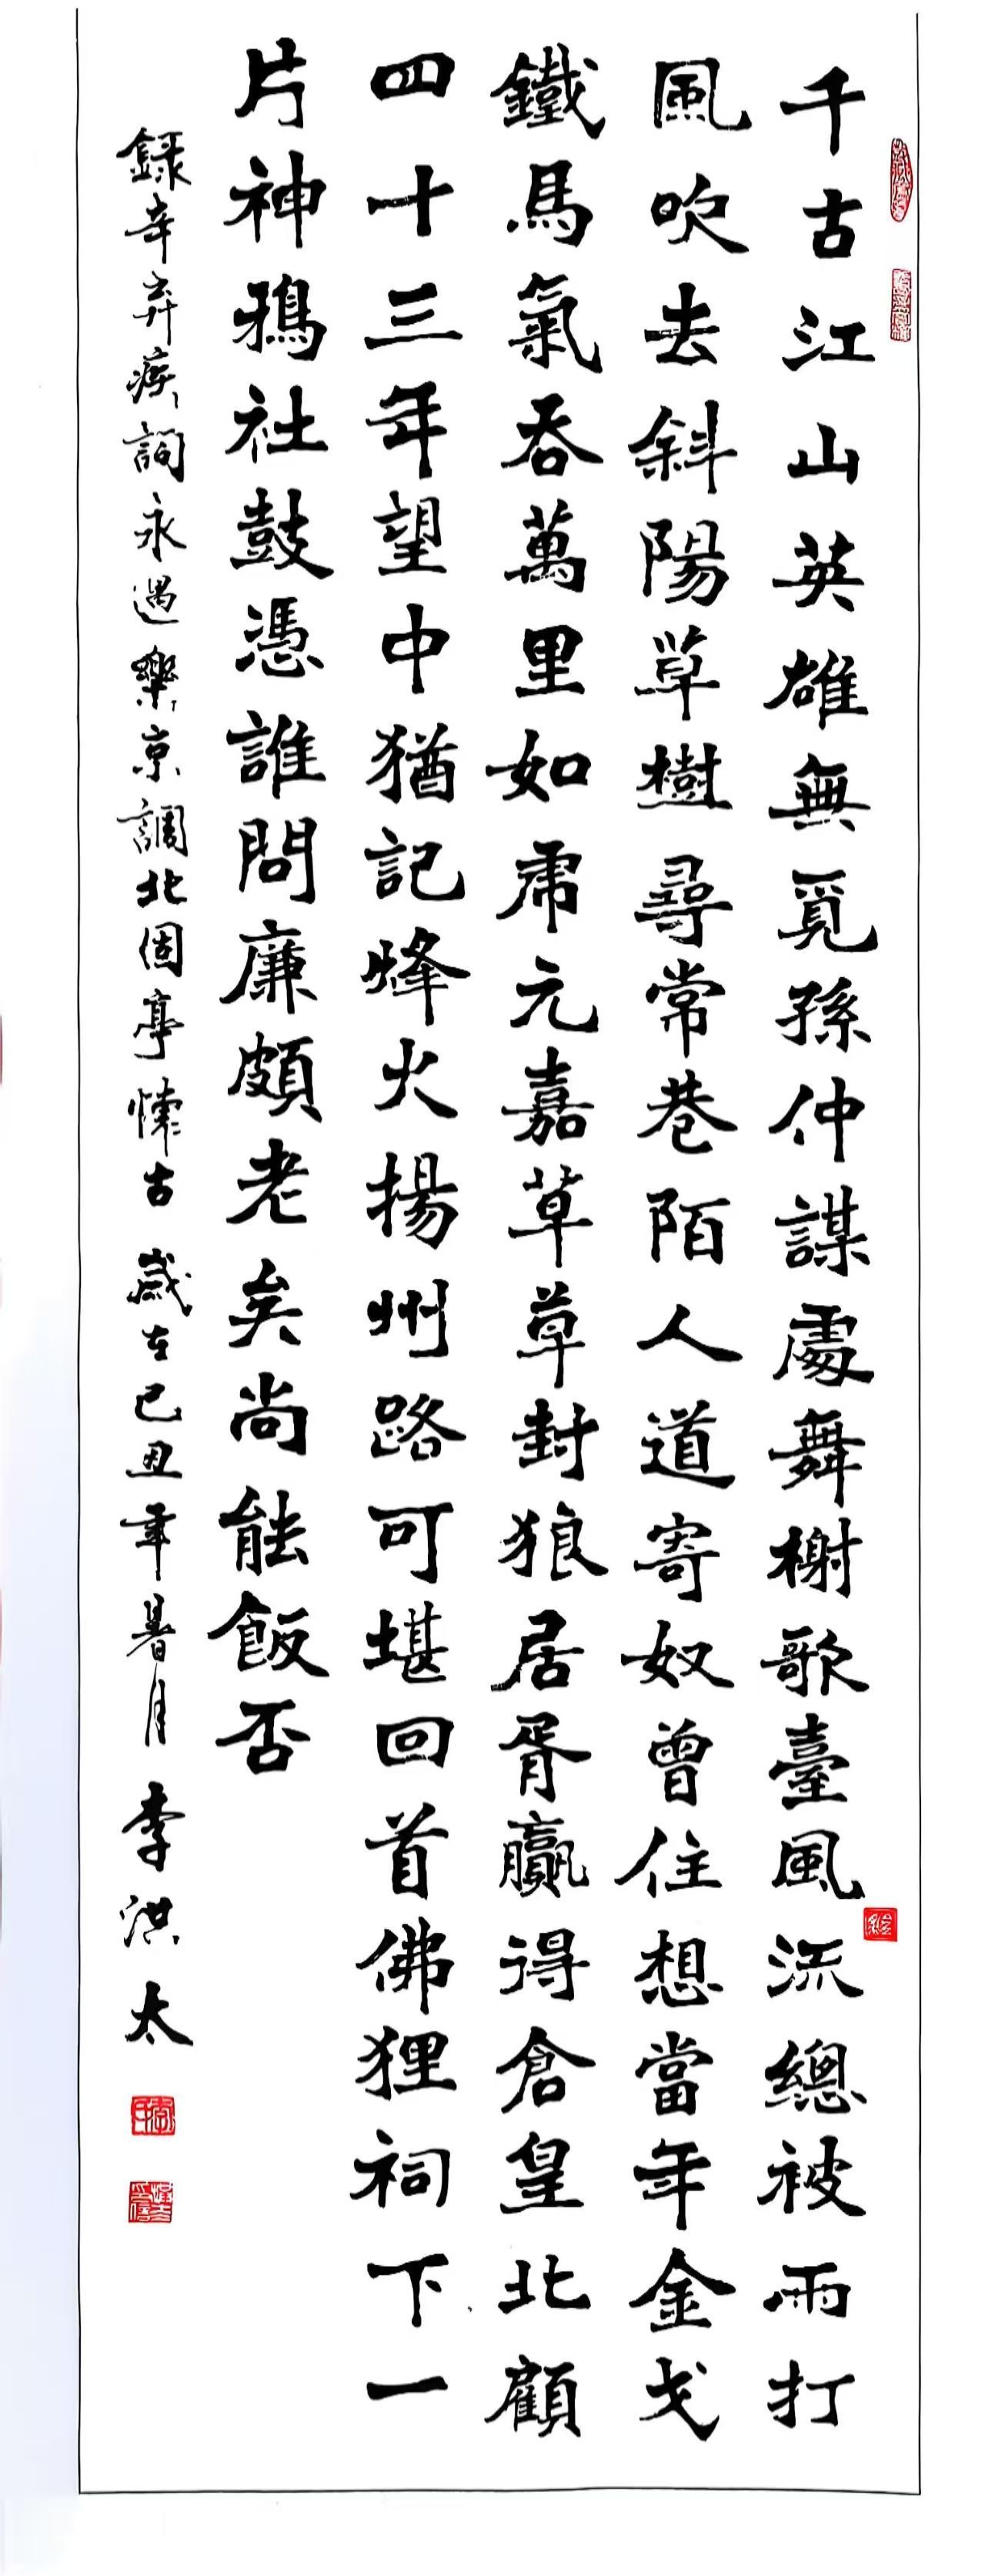 千古江山英雄無覓孫仲謀處舞榭歌臺風流總被雨打
風吹去斜陽草樹尋常巷陌人道寄奴曾住想當年金戈
鐵馬氣吞萬里如虎元嘉草草封狼居胥贏得倉皇北顧
四十三年望中猶記烽火揚州路可堪回首佛狸祠下一
片神鴉社鼓憑誰問廉頗老矣尚能飯否
錄辛弃疾詞永遇樂京調北個亭懷古 歲在己丑年暑月 李洪太